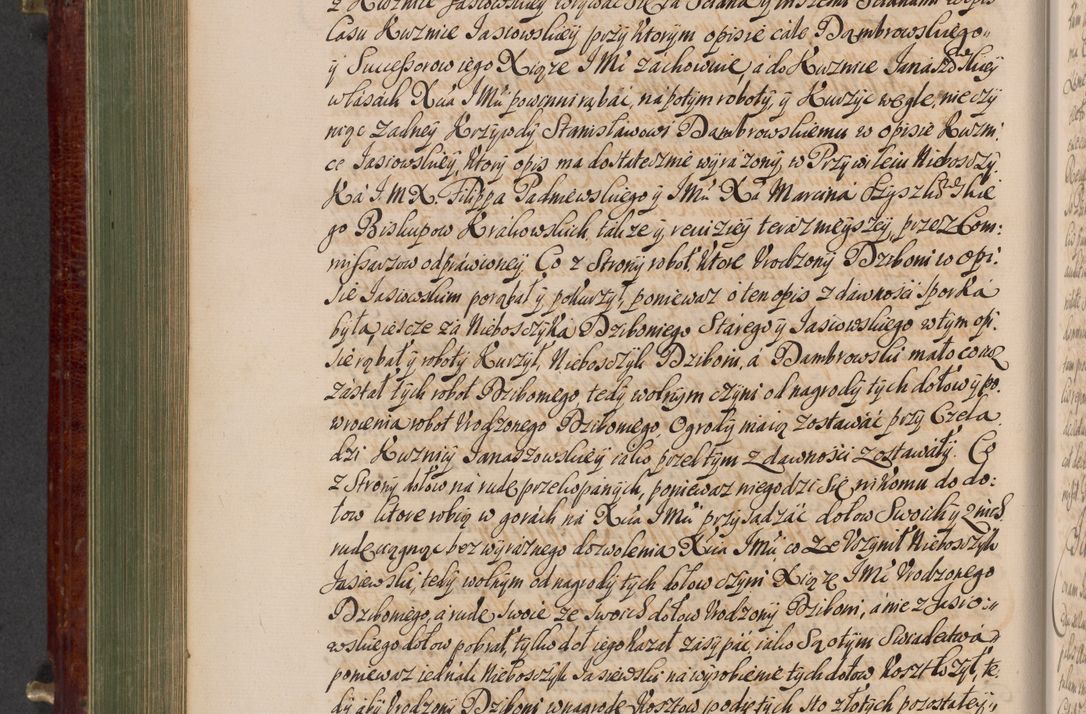 z Kuznice Jasiowskiey
Lasu Kuznice Jasiowskiey przy ktorym opisie cále Dambrowskiego
y Successorow iego Xiąze JMć záchowuie, a do Kuznice Janaszowskiey
w lasách Xcia JMći powinni rąbáć, ná potym roboty, y Kurzyć węgle, nie czy
niąc zadney Krzywdy Stanisławowi Dambrowskiemu w opisie Kuzni
ce Jasiowskiey, ktory opis ma dostatecznie wyrázony, w Przywileiu Nieboszczy
ká JMX. Filippa Padniewskiego y JMći Xa Marcina Szyszkowskie
go Biskupow Krákowskich, takze y rewiziey teráznieyszey, przez Com:
missarzow odpráwioney. Co z Strony robot, ktore Urodzony Dziboni w opi:
sie Jasiowskim porąbał y pokurzył, poniewaz o ten opis z dawnosci sporká
byłá, iescze zá Nieboszczyka Dziboniego Starego y Jasiowskiego w tym opi
sie rąbał y roboty Kurzył, Nieboszczyk Dziboni, á Dambrowski máło co
zástał tych robot Dziboniego, tedy wolnym czyni od nagrody tych dołow y po
wrocenia robot Urodzonego Dziboniego. Ogrody máią zostawáć przy Czela
dzi Kuznicy Janaszowskiey iáko przed tym z dawnosci zostawáły. Co
z Strony dołow ná rudę przekopánych, poniewaz niegodzi się nikomu do do:
łow ktore robią w gorách ná Xcia JMći przysadzáć dołow Swoich y z nich
rudę ciągnąc bez wyráznego dozwolenia Xcia JMći co ze Uczynił Nieboszczyk
Jasiewski, tedy wolnym od nagrody tych dołow czyni Xiąze JMć Urodzonego
Dziboniego, a rudę swoię ze swoich dołow Urodzony Dziboni, á nie z Jasio:
wskiego dołow pobrał, tylko doł iego kazał zásypáć, iáko Są o tym Swiadectwá
poniewaz iednák Nieboszczyk Jasiewski ná wyrobienie tych dołow Koszt łozył, te
dy áby Urodzony Dziboni w nagrodę Kosztow podiętych sto złotych pozostałey